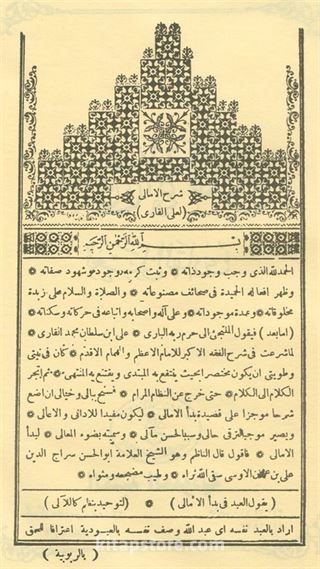 شرح الامالى
(لعلى القارى)
بسم الله الرحمن الرحيم
الحمد لله الذى وجب وجود ذاته * وثبت كرمه وجوده وشهود صفاته *
وظهر افعاله الحميدة فى صحائف مصنوعاته * والصلاة والسلام على زبدة
مخلوقاته * وعمدة موجوداته * وعلى آله واصحابه واتباعه فى حركاته وسكناته *
(امابعد) فيقول الملتجئ الى حرم ربه البارى * على ابن سلطان محمد القارى *
لما شرعت فى شرح الفقه الاكبر للامام الاعظم والهمام الاقدم * كان فى نيتى
وطويتى ان يكون مختصرا بحيث ينتفع به المبتدى ويقتنع به المنتهى * ثم انجر
الكلام الى الكلام * حتى خرج عن النظام المرام * فسنح ببالى وخيالى ان اضع
شرحا موجزا على قصيدة بدأ الامالى * ليكون مفيدا للادانى والاعالى *
ويصير موجبا لترقى حالى وسببا لحسن مآلى * وسميته بضوء المعالى * لبدأ
الامالى * فاقول قال الناظم وهو الشيخ العلامة ابوالحسن سراج الدين
على بن عثمان الاوسى سقى الله ثراه * وطيب مضجعه ومثواه *
(يقول العبد فى بدأ الامالى) (لتوحيد بنظم كاللآلى)
اراد بالعبد نفسه اى عبد الله وصف نفسه بالعبودية اعترافا للحق
(بالربوبية)
kitapstore.com